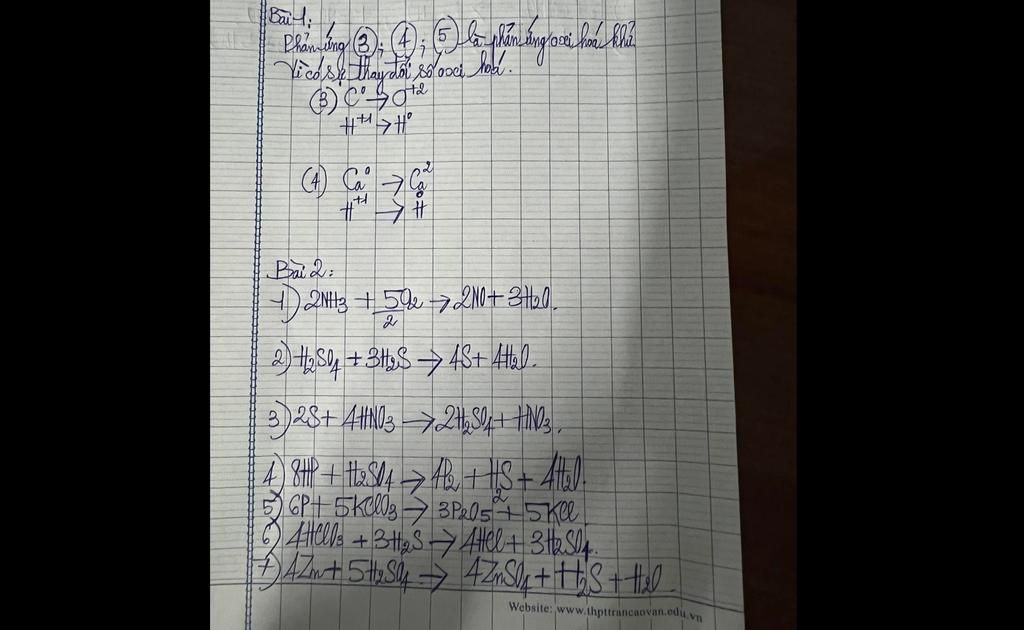 Bài 1:
Phản ứng (3); (4); (5) là phản ứng oxi hoá khử
Vì có sự thay đổi số oxi hoá.
(3) C⁰ → C⁺²
H⁺¹ → H⁰
(4) Ca⁰ → Ca²
H⁺¹ → H⁰
Bài 2:
1) 2NH3 + 5/2 O2 → 2NO + 3H2O.
2) H2SO4 + 3H2S → 4S + 4H2O.
3) 2S + 4HNO3 → 2H2SO4 + HNO3.
4) 8HI + H2SO4 → 4I2 + H2S + 4H2O.
5) 6P + 5KClO3 → 3P2O5 + 5KCl
6) 4HClO3 + 3H2S → 4HCl + 3H2SO4.
7) 4Zn + 5H2SO4 → 4ZnSO4 + H2S + H2O.
Website: www.thpttrancaovan.edu.vn